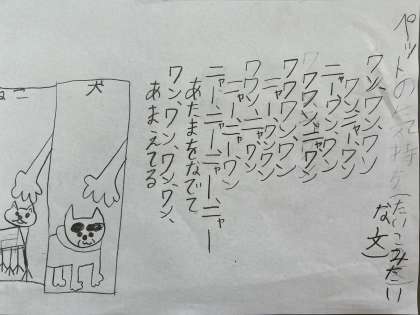 ペットの気持ち(たいこみたい
な文)
ワン、ワン、ワン
ワン、ニャー、ワン
ニャー、ワン、ワン
ワワワン、ニャワン
ワワワン、ワン
ワワン、ニャ、ワン
ニャー、ニャー、ワン
ニャー、ニャー、ニャー、ニャー
あたまをなでて
ワン、ワン、ワン、ワン、
あまえてる
犬
ねこ